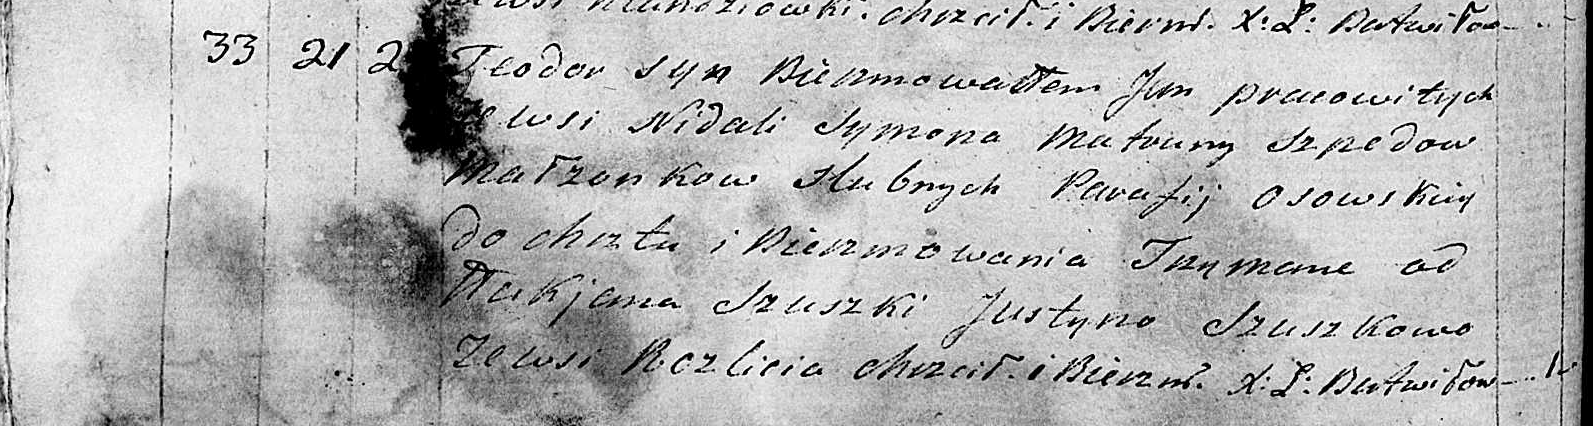 chrzcił. i Bierm. X: Ł: Butwiłow
33 21 2 Teodor syn Biermowałem Jan pracowitych
ze wsi Nidali Symona Matruny Szpedow
Małzonkow slubnych Parafij Osowskiey
do chrztu i Bierzmowania Trzymane od
Łukjana Szuszki Justyno Szuszkowo
ze wsi chrzcił. i Bierzm. X: Ł: Butwiłow